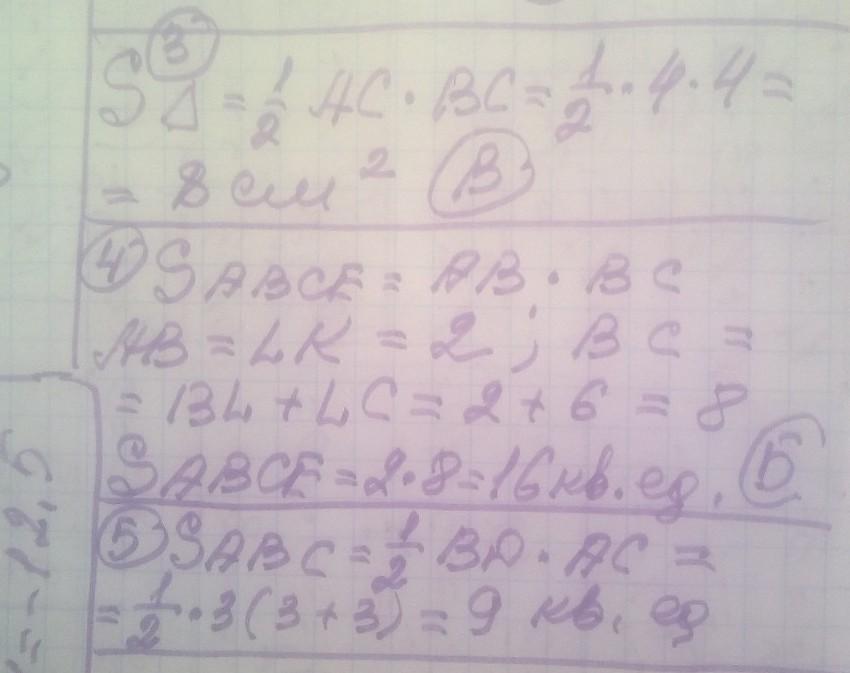 3
S△ = 1/2 AC · BC = 1/2 · 4 · 4 =
= 8 см² В
4 SABCE = AB · BC
AB = LK = 2 ; BC =
= BL + LC = 2 + 6 = 8
SABCE = 2 · 8 = 16 кв. ед. Б
5 SABC = 1/2 BD · AC =
= 1/2 · 3(3 + 3) = 9 кв. ед
= -12,5